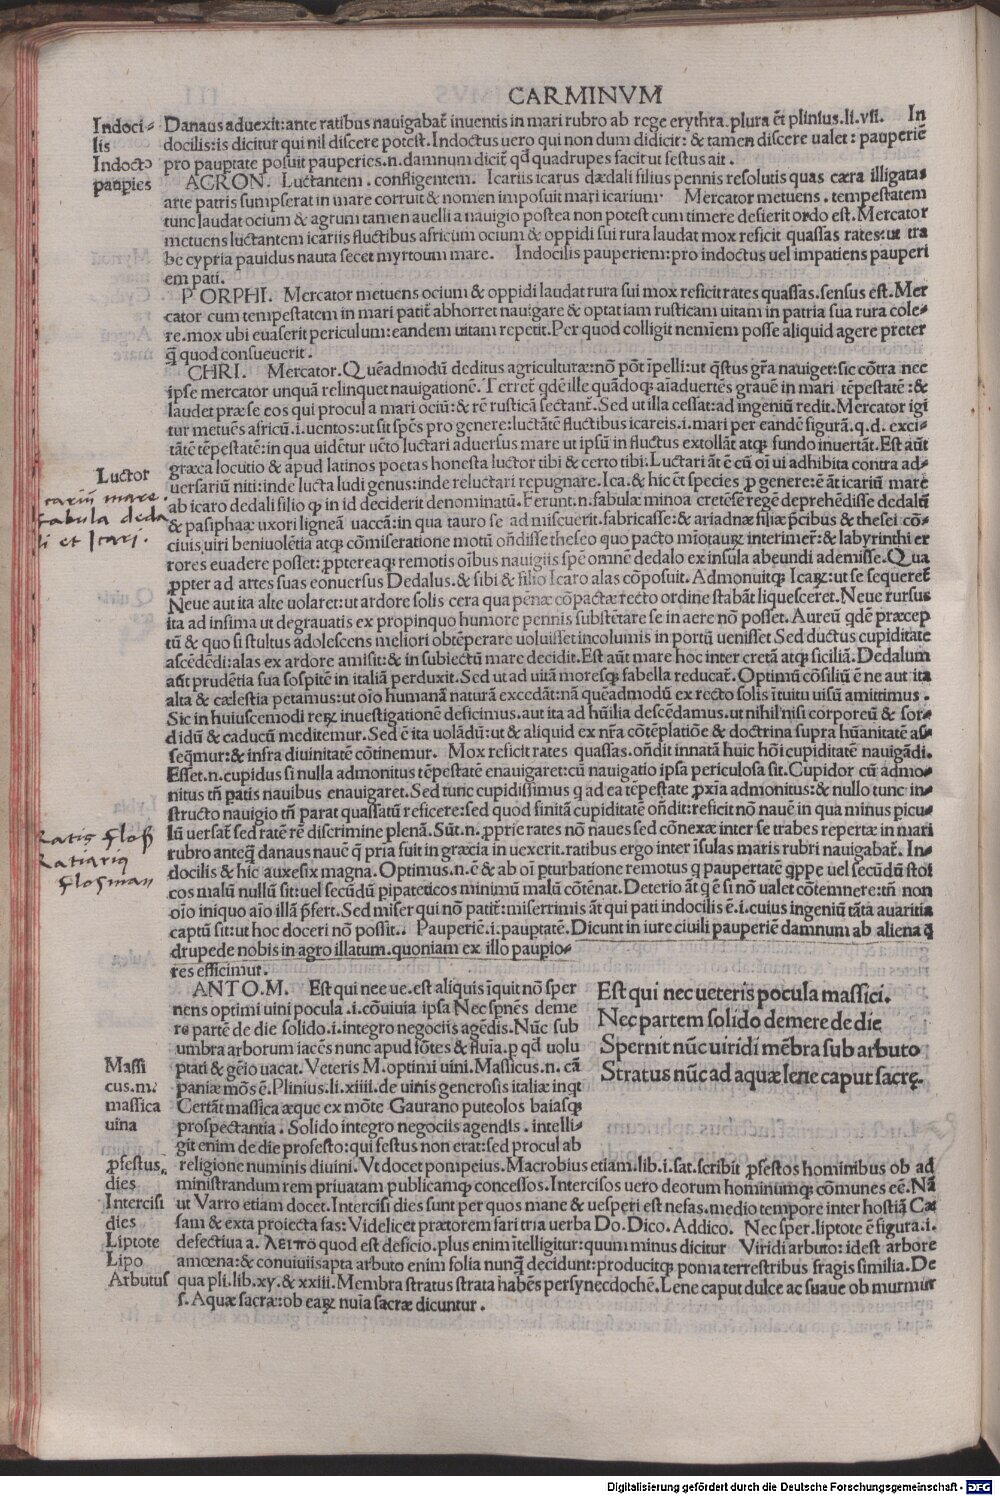 CARMINVM
Indoci-
lis
Indocto
paupies
Danaus aduexit: ante ratibus nauigabat̄ inuentis in mari rubro ab rege erythra. plura ēt plinius. li. vii. In
docilis: is dicitur qui nil discere potest. Indoctus uero qui non dum didicit: & tamen discere ualet: pauperiē
pro paupt̄ate posuit pauperies. n. damnum dicit̄ qd̄ quadrupes facit ut festus ait.
ACRON. Luctantem. confligentem. Icariis icarus dædali filius pennis resolutis quas cæra illigatas
arte patris sumpserat in mare corruit & nomen imposuit mari icarium. Mercator metuens. tempestatem
tunc laudat ocium & agrum tamen auelli a nauigio postea non potest cum timere desierit ordo est. Mercator
metuens luctantem icariis fluctibus africum ocium & oppidi sui rura laudat mox reficit quassas rates: ut tra
be cypria pauidus nauta secet myrtoum mare. Indocilis pauperiem: pro indoctus uel impatiens pauperi
em pati.
PORPHI. Mercator metuens ocium & oppidi laudat rura sui mox reficit rates quassas. sensus est. Mer
cator cum tempestatem in mari patit̄ abhorret nauigare & optat iam rusticam uitam in patria sua rura cole-
re. mox ubi euaserit periculum: eandem uitam repetit. Per quod colligit neminem posse aliquid agere preter
q̄ quod consueuerit.
CHRI. Mercator. Quēadmodū deditus agriculturæ: nō pōt īpelli: ut q̄stus gr̄a nauiget: sic cōtra nec
ipse mercator unquā relinquet nauigationē. Terret̄ qdē ille quādoqꝫ aīaduertēs grauē in mari tēpestatē: &
laudet præ se eos qui procul a mari ociū: & rē rusticā sectant̄. Sed ut illa cessat: ad ingeniū redit. Mercator igi
tur metuēs africū. i. uentos: ut sit spēs pro genere: luctātē fluctibus icareis. i. mari per eandē figurā. q. d. exci-
tātē tēpestatē: in qua uidētur uēto luctari aduersus mare ut ipsū in fluctus extollāt atqꝫ fundo inuertāt. Est aūt
græca locutio & apud latinos poetas honesta luctor tibi & certo tibi. Luctari āt ē cū oī ui adhibita contra ad-
uersariū niti: inde lucta ludi genus: inde reluctari repugnare. Ica. & hic ēt species p̱ genere: ē āt icariū mare
Luctor
icariū mare.
fabula deda
li et Icari.
ab icaro dedali filio qꝫ in id deciderit denominatū. Ferunt. n. fabulæ minoa cretēsē regē deprehēdisse dedalū
& pasiphaæ uxori ligneā uaccā: in qua tauro se admiscuerit. fabricasse: & ariadnæ filiæ p̄cibus & thesei cō-
ciuis uiri beniuolētia atqꝫ cōmiseratione motū oñdisse theseo quo pacto mīotaurꝫ interimer̄: & labyrinthi er
rores euadere posset: p̱ptereaqꝫ remotis oībus nauigiis spē omnē dedalo ex insula abeundi ademisse. Qua
p̱pter ad artes suas conuersus Dedalus. & sibi & filio Icaro alas cōposuit. Admonuitqꝫ Icarꝫ: ut se sequeret̄
Neue aut ita alte uolaret: ut ardore solis cera qua pēnæ cōpactæ recto ordine stabāt liquesceret. Neue rursus
ita ad infima ut degrauatis ex propinquo humore pennis substētare se in aere nō posset. Aureū qdē præcep
tū & quo si stultus adolescens meliori obtēperare uoluisset incolumis in portū uenisset Sed ductus cupiditate
ascēdēdi: alas ex ardore amisit: & in subiectū mare decidit. Est aūt mare hoc inter cretā atqꝫ siciliā. Dedalum
aūt prudētia sua sospitē in italiā perduxit. Sed ut ad uitā moresqꝫ fabella reducat̄. Optimū cōsiliū ē ne aut ita
alta & cælestia petamus: ut oīo humanā naturā excedāt: nā quēadmodū ex recto solis ītuitu uisū amittimus.
Sic in huiuscemodi rerꝫ inuestigationē deficimus. aut ita ad hūilia descēdamus. ut nihil nisi corporeū & sor-
didū & caducū meditemur. Sed ē ita uolādū: ut & aliquid ex nr̄a cōtēplatiōe & doctrina supra hūanitatē as-
seq̄mur: & infra diuinitatē cōtinemur. Mox reficit rates quassas. oñdit innatā huic hōi cupiditatē nauigādi.
Esset. n. cupidus si nulla admonitus tēpestatē enauigaret: cū nauigatio ipsa periculosa sit. Cupidor cū admo-
nitus tn̄ p̱atis nauibus enauigaret. Sed tunc cupidissimus q ad ea tēpestate p̱xīa admonitus: & nullo tunc in-
structo nauigio tn̄ parat quassatū reficere: sed quod finitā cupiditatē oñdit: reficit nō nauē in qua minus picu-
lū uersat̄ sed ratē rē discrimine plenā. Sūt. n. p̱prie rates nō naues sed cōnexæ inter se trabes repertæ in mari
Ratis floß
Ratiariꝰ
floßman
rubro anteq̄ danaus nauē q̄ prīa fuit in græcia in uexerit. ratibus ergo inter īsulas maris rubri nauigabat̄. In-
docilis & hic auxesix magna. Optimus. n. ē & ab oī pturbatione remotus q paupertatē qppe uel secūdū stoi
cos malū nullū sit: uel secūdū pipateticos minimū malū cōtēnat. Deterio āt q ē si nō ualet cōtemnere: tn̄ non
oīo iniquo aīo illā p̄fert. Sed miser qui nō patit̄: miserrimis āt qui pati indocilis ē. i. cuius ingeniū tāta auaritia
captū sit: ut hoc doceri nō possit. Pauperiē. i. paup̱tatē. Dicunt in iure ciuili pauperiē damnum ab aliena q̄
drupede nobis in agro illatum. quoniam ex illo paupio-
res efficimur.
ANTO. M. Est qui nec ue. est aliquis īquit nō sper
nens optimi uini pocula. i. cōuiuia ipsa Nec spnēs deme
re partē de die solido. i. integro negociis agēdis. Nūc sub
umbra arborum iacēs nunc apud fōtes & fluīa. p qd̄ uolu
ptati & gēio uacat. Veteris M. optimi uini. Massicus. n. cā
paniæ mōs ē. Plinius. li. xiiii. de uinis generosis italiæ inqt
Certāt massica æque ex mōte Gaurano puteolos baiasqꝫ
prospectantia. Solido integro negociis agendis. intelli-
git enim de die profesto: qui festus non erat: sed procul ab
Est qui nec ueteris pocula massici.
Nec partem solido demere de die
Spernit nūc uiridi mēbra sub arbuto
Stratus nūc ad aquæ lene caput sacrę.
Massi
cus. m.
massica
uina
p̱festus
dies
Intercisi
dies
Liptote
Lipo
Arbutus
religione numinis diuini. Vt docet pompeius. Macrobius etiam. lib. i. sat. scribit p̱festos hominibus ob ad
ministrandum rem priuatam publicamqꝫ concessos. Intercisos uero deorum hominumqꝫ cōmunes eē. Nā
ut Varro etiam docet. Intercisi dies sunt per quos mane & uesperi est nefas. medio tempore inter hostiā Cæ
sam & exta proiecta fas: Videlicet prætorem fari tria uerba Do. Dico. Addico. Nec sper. liptote ē figura. i.
defectiua a. λειπο quod est deficio. plus enim ītelligitur: quum minus dicitur Viridi arbuto: idest arbore
amœna: & conuiuiis apta arbuto enim folia nunq̄ decidunt: producitqꝫ poma terrestribus fragis similia. De
qua pli. lib. xy. & xxiii. Membra stratus strata habēs per synecdochē. Lene caput dulce ac suaue ob murmur
s. Aquæ sacræ: ob earꝫ nuīa sacræ dicuntur.
Digitalisierung gefördert durch die Deutsche Forschungsgemeinschaft - DFG